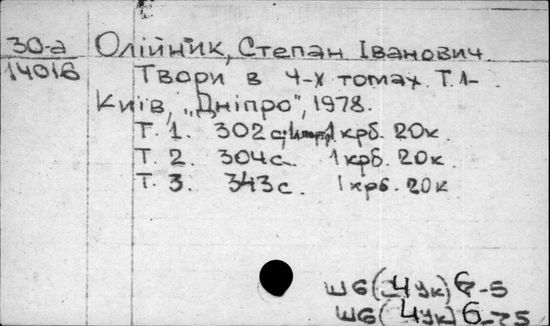 30-а Олійник, Степан Іванович.
14016 Твори в 4-х томах. Т.1-
Київ, „Дніпро", 1978.
Т. 1. 302с; 1крб. 20к.
Т. 2. 304с. 1крб. 20к.
Т. 3. 343с. 1крб. 20к
Ш6(4Ук)6-5
Ш6(4Ук)6-75